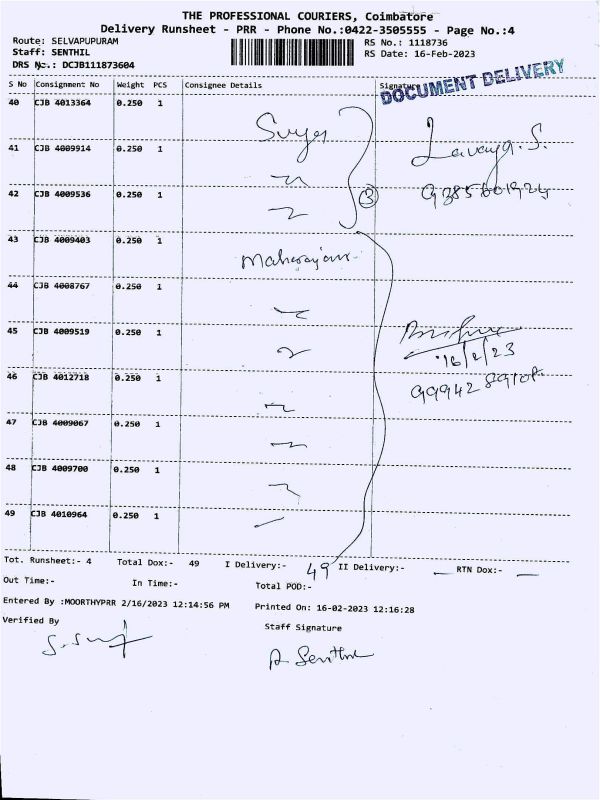 THE PROFESSIONAL COURIERS, Coimbatore
Delivery Runsheet - PRR - Phone No.:0422-3505555 - Page No.:4
Route: SELVAPUPURAM
RS No.: 1118736
Staff: SENTHIL
RS Date: 16-Feb-2023
DRS No.: DCJB111873604
S No Consignment No Weight PCS Consignee Details Signature
DOCUMENT DELIVERY
40 CJB 4013364 0.250 1
Surya
41 CJB 4009914 0.250 1
Lavanya. S.
42 CJB 4009536 0.250 1
3
43 CJB 4009403 0.250 1
Maharajan
44 CJB 4008767 0.250 1
45 CJB 4009519 0.250 1
16/2/23
46 CJB 4012718 0.250 1
47 CJB 4009067 0.250 1
48 CJB 4009700 0.250 1
49 CJB 4010964 0.250 1
Tot. Runsheet:- 4 Total Dox:- 49 I Delivery:- 49 II Delivery:- — RTN Dox:- —
Out Time:- In Time:- Total POD:-
Entered By :MOORTHYPRR 2/16/2023 12:14:56 PM Printed On: 16-02-2023 12:16:28
Verified By
Staff Signature
A Senthil